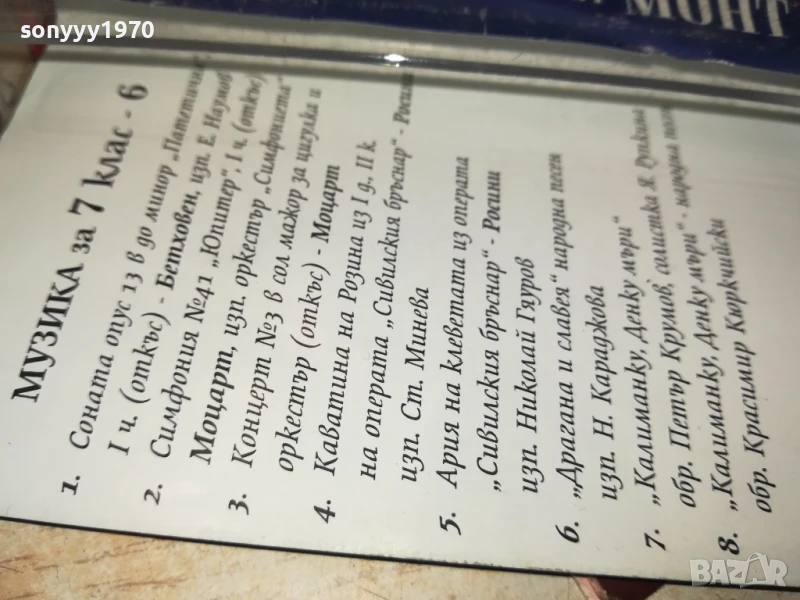 sonyyy1970
МОНТ
МУЗИКА за 7 клас - 6
1. Соната опус 13 в до минор „Патетична“
I ч. (откъс) - Бетховен, изп. Е. Наумов
2. Симфония №41 „Юпитер“, I ч. (откъс)
Моцарт, изп. оркестър „Симфониета“
3. Концерт №3 в сол мажор за цигулка и
оркестър (откъс) - Моцарт
4. Каватина на Розина из I д., II к.
на операта „Сивилския бръснар“ - Росини
изп. Ст. Минева
5. Ария на клеветата из операта
„Сивилския бръснар“ - Росини
изп. Николай Гяуров
6. „Драгана и славея“ народна песен
изп. Н. Караджова
7. „Калиманку, Денку мъри“
обр. Петър Крумов, солистка Я. Рупкина
8. „Калиманку, Денку мъри“ - народна песен
обр. Красимир Кюркчийски
BAZAR